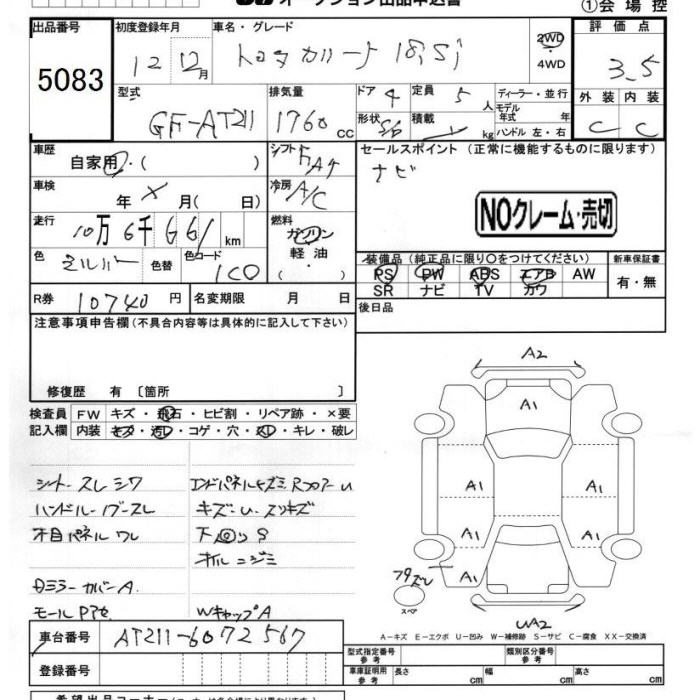 ①会場控
出品番号 初度登録年月 車名・グレード 評価点
5083 12 12月 トヨタカリーナ 18Si 2WD 4WD 3.5
型式 排気量 ドア 4 定員 5人 ディーラー・並行 外装 内装
GF-AT211 1760cc 形状 S/D 積載 kg モデル年式 年 ハンドル 左・右 C C
車歴 シフト FA4 セールスポイント (正常に機能するものに限ります)
自家用・( ) ナビ
車検 年 × 月( 日) 冷房 A/C
NOクレーム・売切
走行 10万6千661km 燃料 ガソリン 軽油 ・( )
色 シルバー 色替 色コード 1C0
装備品 (純正品に限り○をつけてください) 新車保証書
PS PW ABS エアB AW 有・無
SR ナビ TV カワ
R券 10740円 名変期限 月 日 後日品
注意事項申告欄(不具合内容等は具体的に記入して下さい)
修復歴 有 〔箇所 〕
検査員 FW キズ・飛石・ヒビ割・リペア跡・×要
記入欄 内装 モタ・汚レ・コゲ・穴・スレ・キレ・破レ
シート スレ シワ エンドパネルキズミ RフロアーU
ハンドル・ノブースレ キズ・U・スリキズ
木目パネル ワレ 下回りS
オイルニジミ
Dミラーカバー A
モール Pアセ WキャップA
A2
A1
A1 A1
A1 A1
A1
UA2
スペア
A―キズ E―エクボ U―凹み W―補修跡 S―サビ C―腐食 XX―交換済
車台番号 AT211-6072567
登録番号
型式指定番号 参考 類別区分番号 参考
車庫証明用 参考 長さ cm 幅 cm 高さ cm